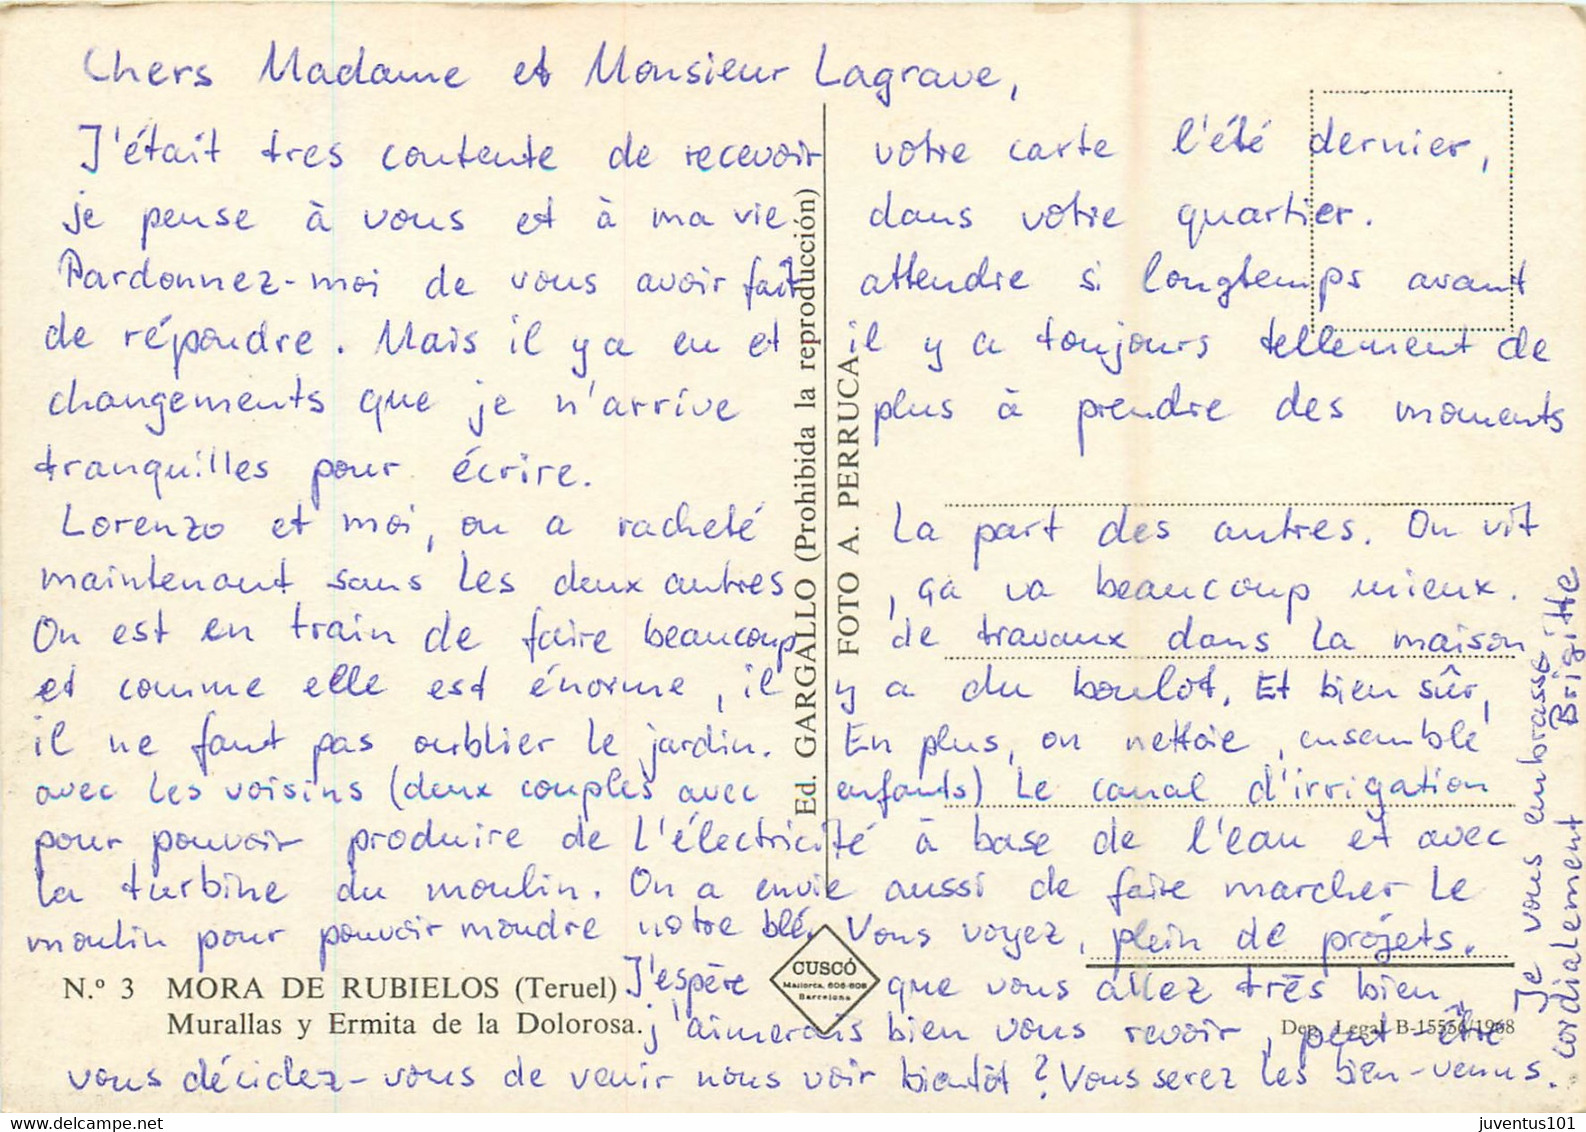 Chers Madame et Monsieur Lagrave,
J'était tres contente de recevoir votre carte l'été dernier,
je pense à vous et à ma vie dans votre quartier.
Pardonnez-moi de vous avoir fait attendre si longtemps avant
de répondre. Mais il y a eu et il y a toujours tellement de
changements que je n'arrive plus à prendre des moments
tranquilles pour écrire.
Lorenzo et moi, on a racheté la part des autres. On vit
maintenant sans les deux autres, ça va beaucoup mieux.
On est en train de faire beaucoup de travaux dans la maison
et comme elle est énorme, il y a du boulot. Et bien sûr,
il ne faut pas oublier le jardin. En plus, on nettoie, ensemble
avec les voisins (deux couples avec enfants) le canal d'irrigation
pour pouvoir produire de l'électricité à base de l'eau et avec
la turbine du moulin. On a envie aussi de faire marcher le
moulin pour pouvoir moudre notre blé. Vous voyez, plein de projets.
J'espère que vous allez très bien,
j'aimerais bien vous revoir, peut-être
vous décidez-vous de venir nous voir bientôt? Vous serez les bien-venus.
Je vous embrasse
cordialement Brigitte
Ed. GARGALLO (Prohibida la reproducción)
FOTO A. PERRUCA
N.º 3 MORA DE RUBIELOS (Teruel)
Murallas y Ermita de la Dolorosa.
CUSCÓ
Mallorca, 606-608
Barcelona
Dep. Legal B-15556/1968
juventus101